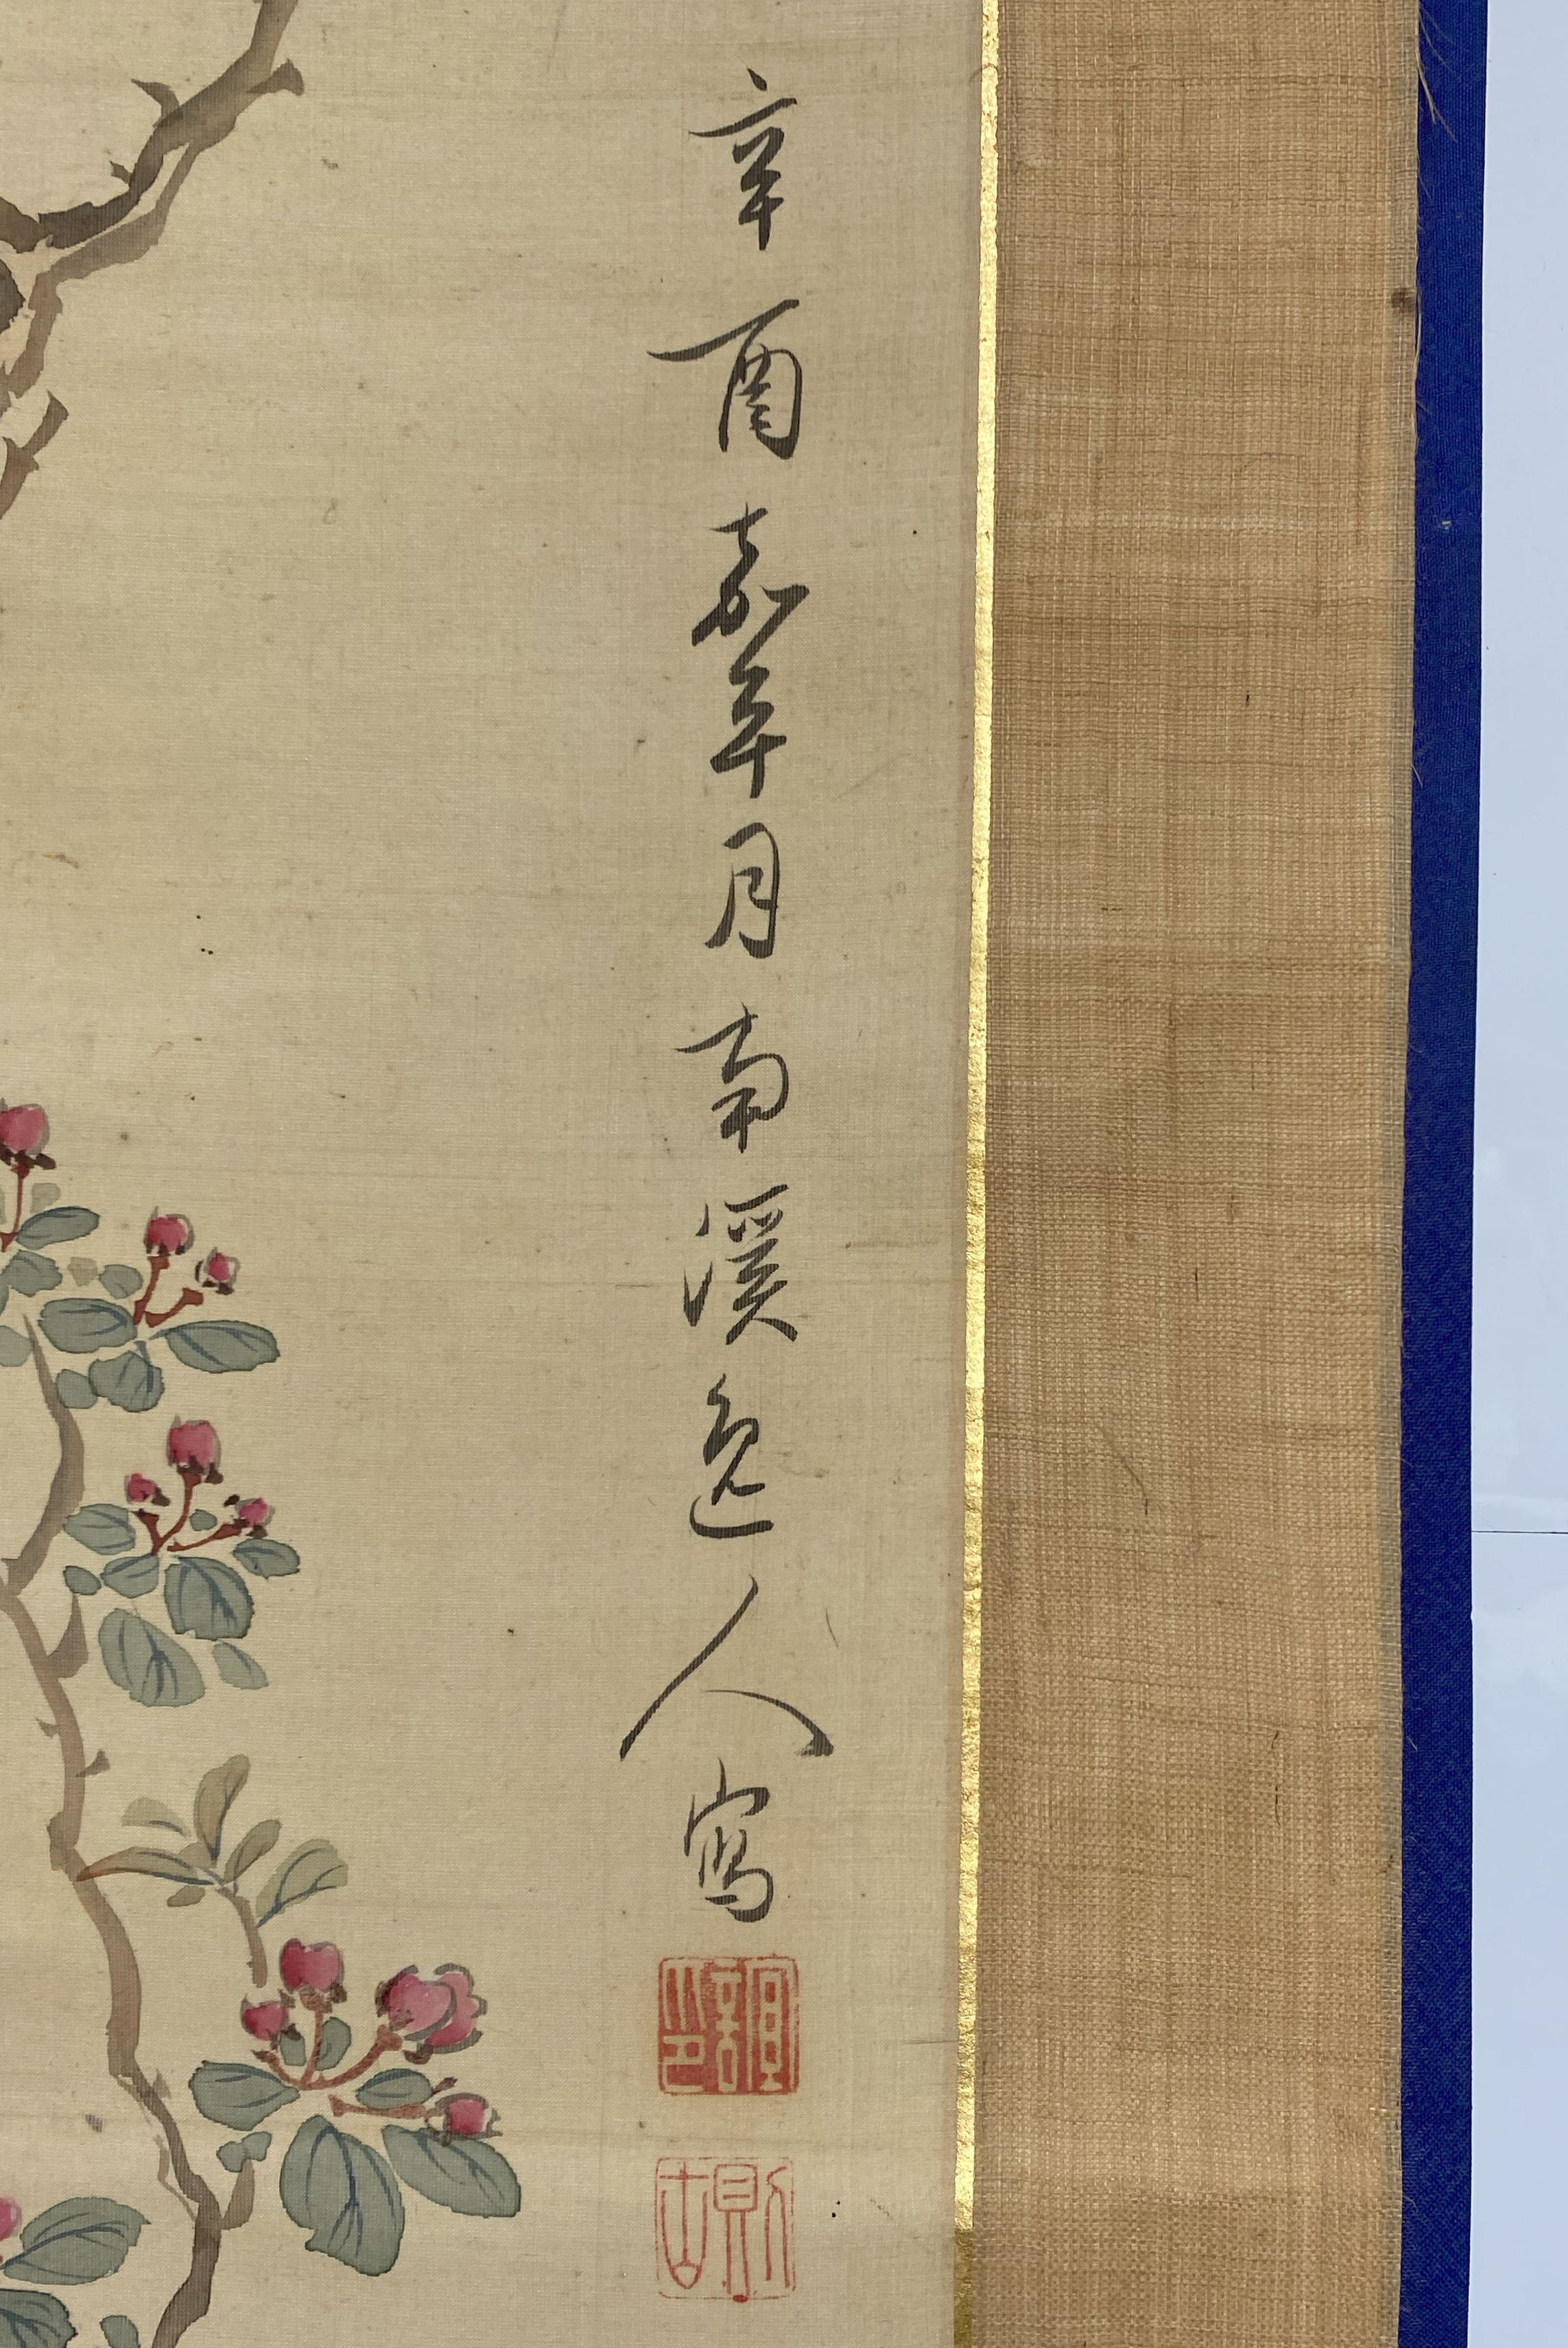 辛酉嘉平月南溪逸人寫